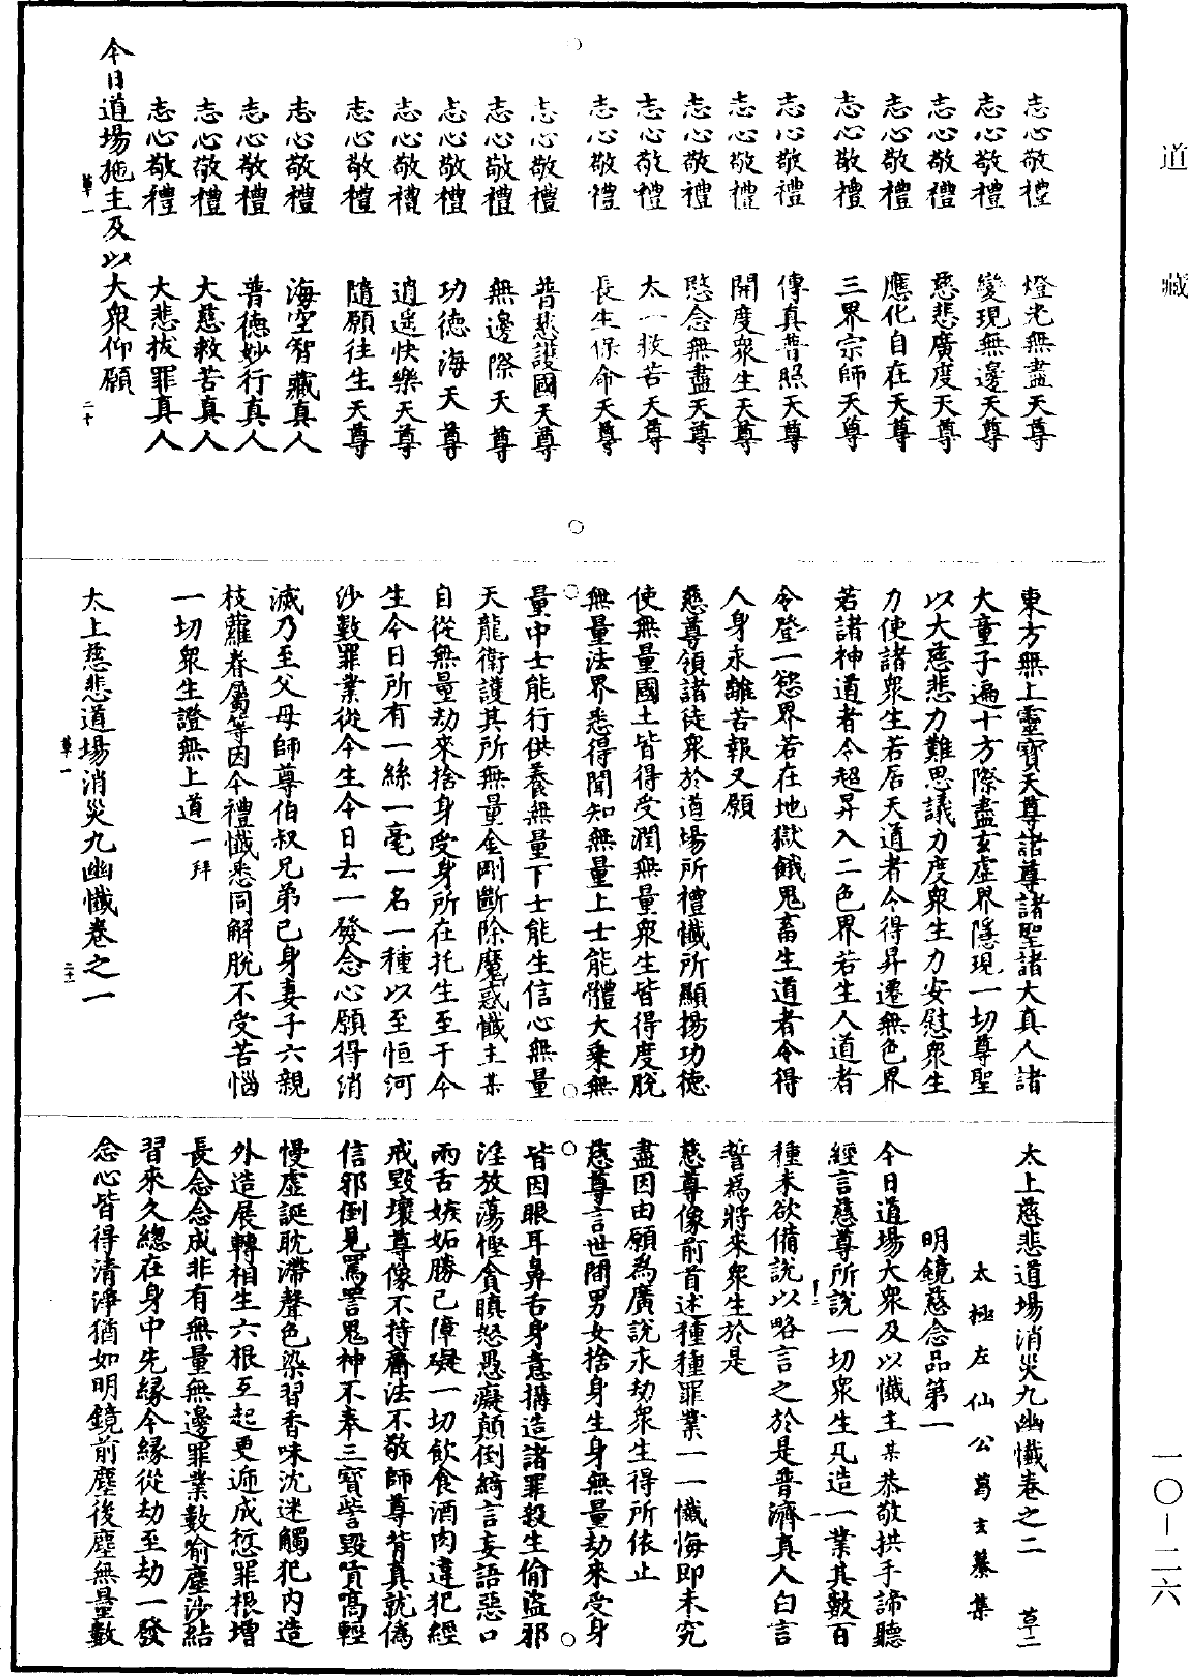 道藏
志心敬禮 燈光無盡天尊
志心敬禮 變現無邊天尊
志心敬禮 慈悲廣度天尊
志心敬禮 應化自在天尊
志心敬禮 三界宗師天尊
志心敬禮 傳真普照天尊
志心敬禮 開度衆生天尊
志心敬禮 愍念無盡天尊
志心敬禮 太一救苦天尊
志心敬禮 長生保命天尊
志心敬禮 普慈護國天尊
志心敬禮 無邊際天尊
志心敬禮 功德海天尊
志心敬禮 逍遥快樂天尊
志心敬禮 隨願往生天尊
志心敬禮 海空智藏真人
志心敬禮 普德妙行真人
志心敬禮 大慈救苦真人
志心敬禮 大悲拔罪真人
今日道場施主及以大衆仰願
草一 二十
東方無上靈寶天尊諸尊諸聖諸大真人諸
大童子遍十方際盡玄虛界隱現一切尊聖
以大慈悲力難思議力度衆生力安慰衆生
力使諸衆生若居天道者令得昇遷無色界
若諸神道者令超昇入二色界若生人道者
令登一慾界若在地獄餓鬼畜生道者令得
人身永離苦報又願
慈尊領諸徒衆於道場所禮懺所顯揚功德
使無量國土皆得受潤無量衆生皆得度脫
無量法界悉得聞知無量上士能體大乘無
量中士能行供養無量下士能生信心無量
天龍衛護其所無量金剛斷除魔惑懺主某
自從無量劫來捨身受身所在托生至于今
生今日所有一絲一毫一名一種以至恒河
沙數罪業從今生今日去一發念心願得消
滅乃至父母師尊伯叔兄弟己身妻子六親
枝蘿眷屬等因今禮懺悉同解脫不受苦惱
一切衆生證無上道一拜
太上慈悲道場消災九幽懺卷之一
草一
太上慈悲道場消災九幽懺卷之二 草二
太極左仙公葛玄纂集
明鏡慈念品第一
今日道場大衆及以懺主某恭敬拱手諦聽
經言慈尊所說一切衆生凡造一業其數百
種未欲備說以略言之於是普濟真人白言
誓爲將來衆生於是
慈尊像前首述種種罪業一一懺悔即未究
盡因由願爲廣說永劫衆生得所依止
慈尊言世間男女捨身生身無量劫來受身
皆因眼耳鼻舌身意搆造諸罪殺生偷盜邪
淫放蕩慳貪瞋怒愚癡顛倒綺言妄語惡口
兩舌嫉妬勝己障礙一切飲食酒肉違犯經
戒毀壞尊像不持齋法不敬師尊背真就僞
信邪倒見罵詈鬼神不奉三寶訾毀貢高輕
慢虛誕耽滯聲色染習香味沈迷觸犯内造
外造展轉相生六根互起更遞成愆罪根增
長念念成非有無量無邊罪業數喻塵沙結
習來久總在身中先緣今緣從劫至劫一發
念心皆得清淨猶如明鏡前塵後塵無量數
一〇-二六